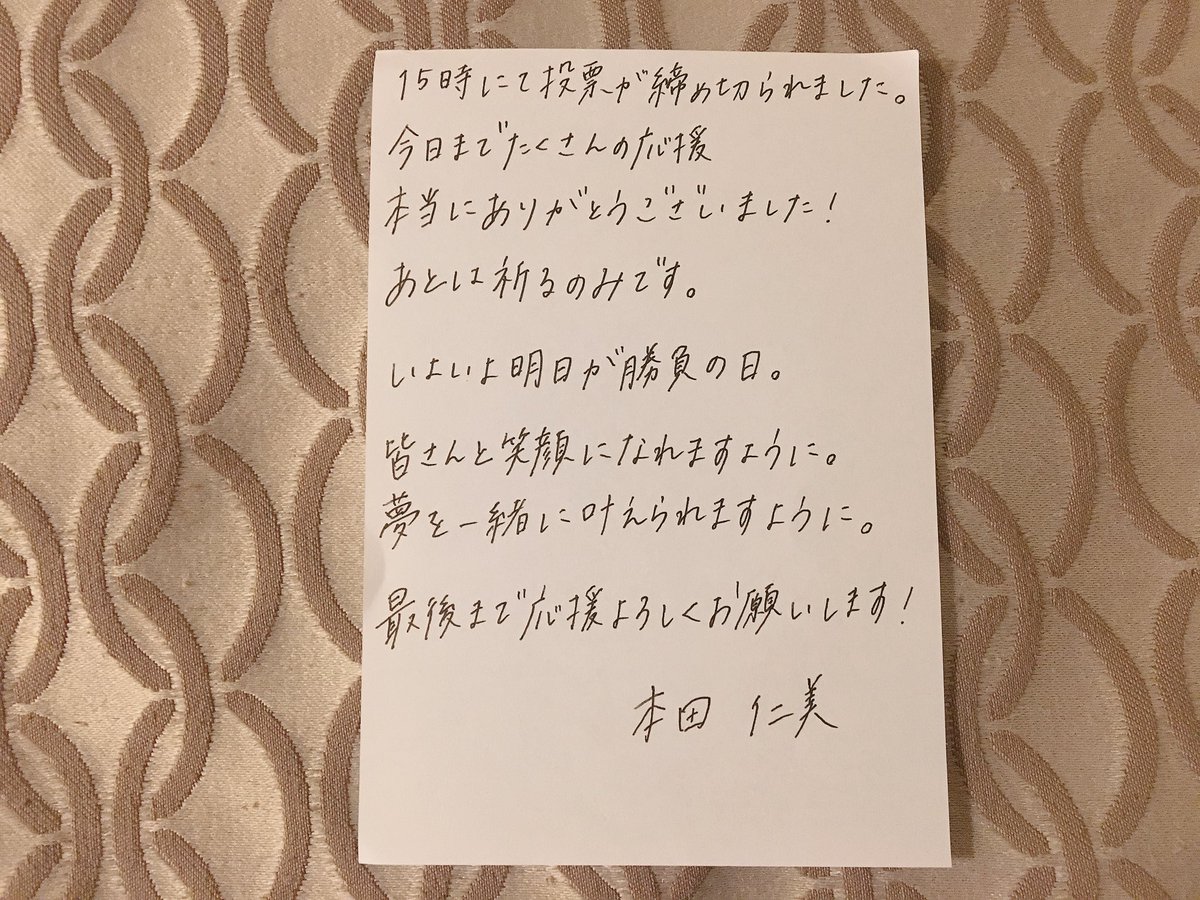 15時にて投票が締め切られました。
今日までたくさんの応援
本当にありがとうございました！
あとは祈るのみです。
いよいよ明日が勝負の日。
皆さんと笑顔になれますように。
夢を一緒に叶えられますように。
最後まで応援よろしくお願いします！
本田 仁美